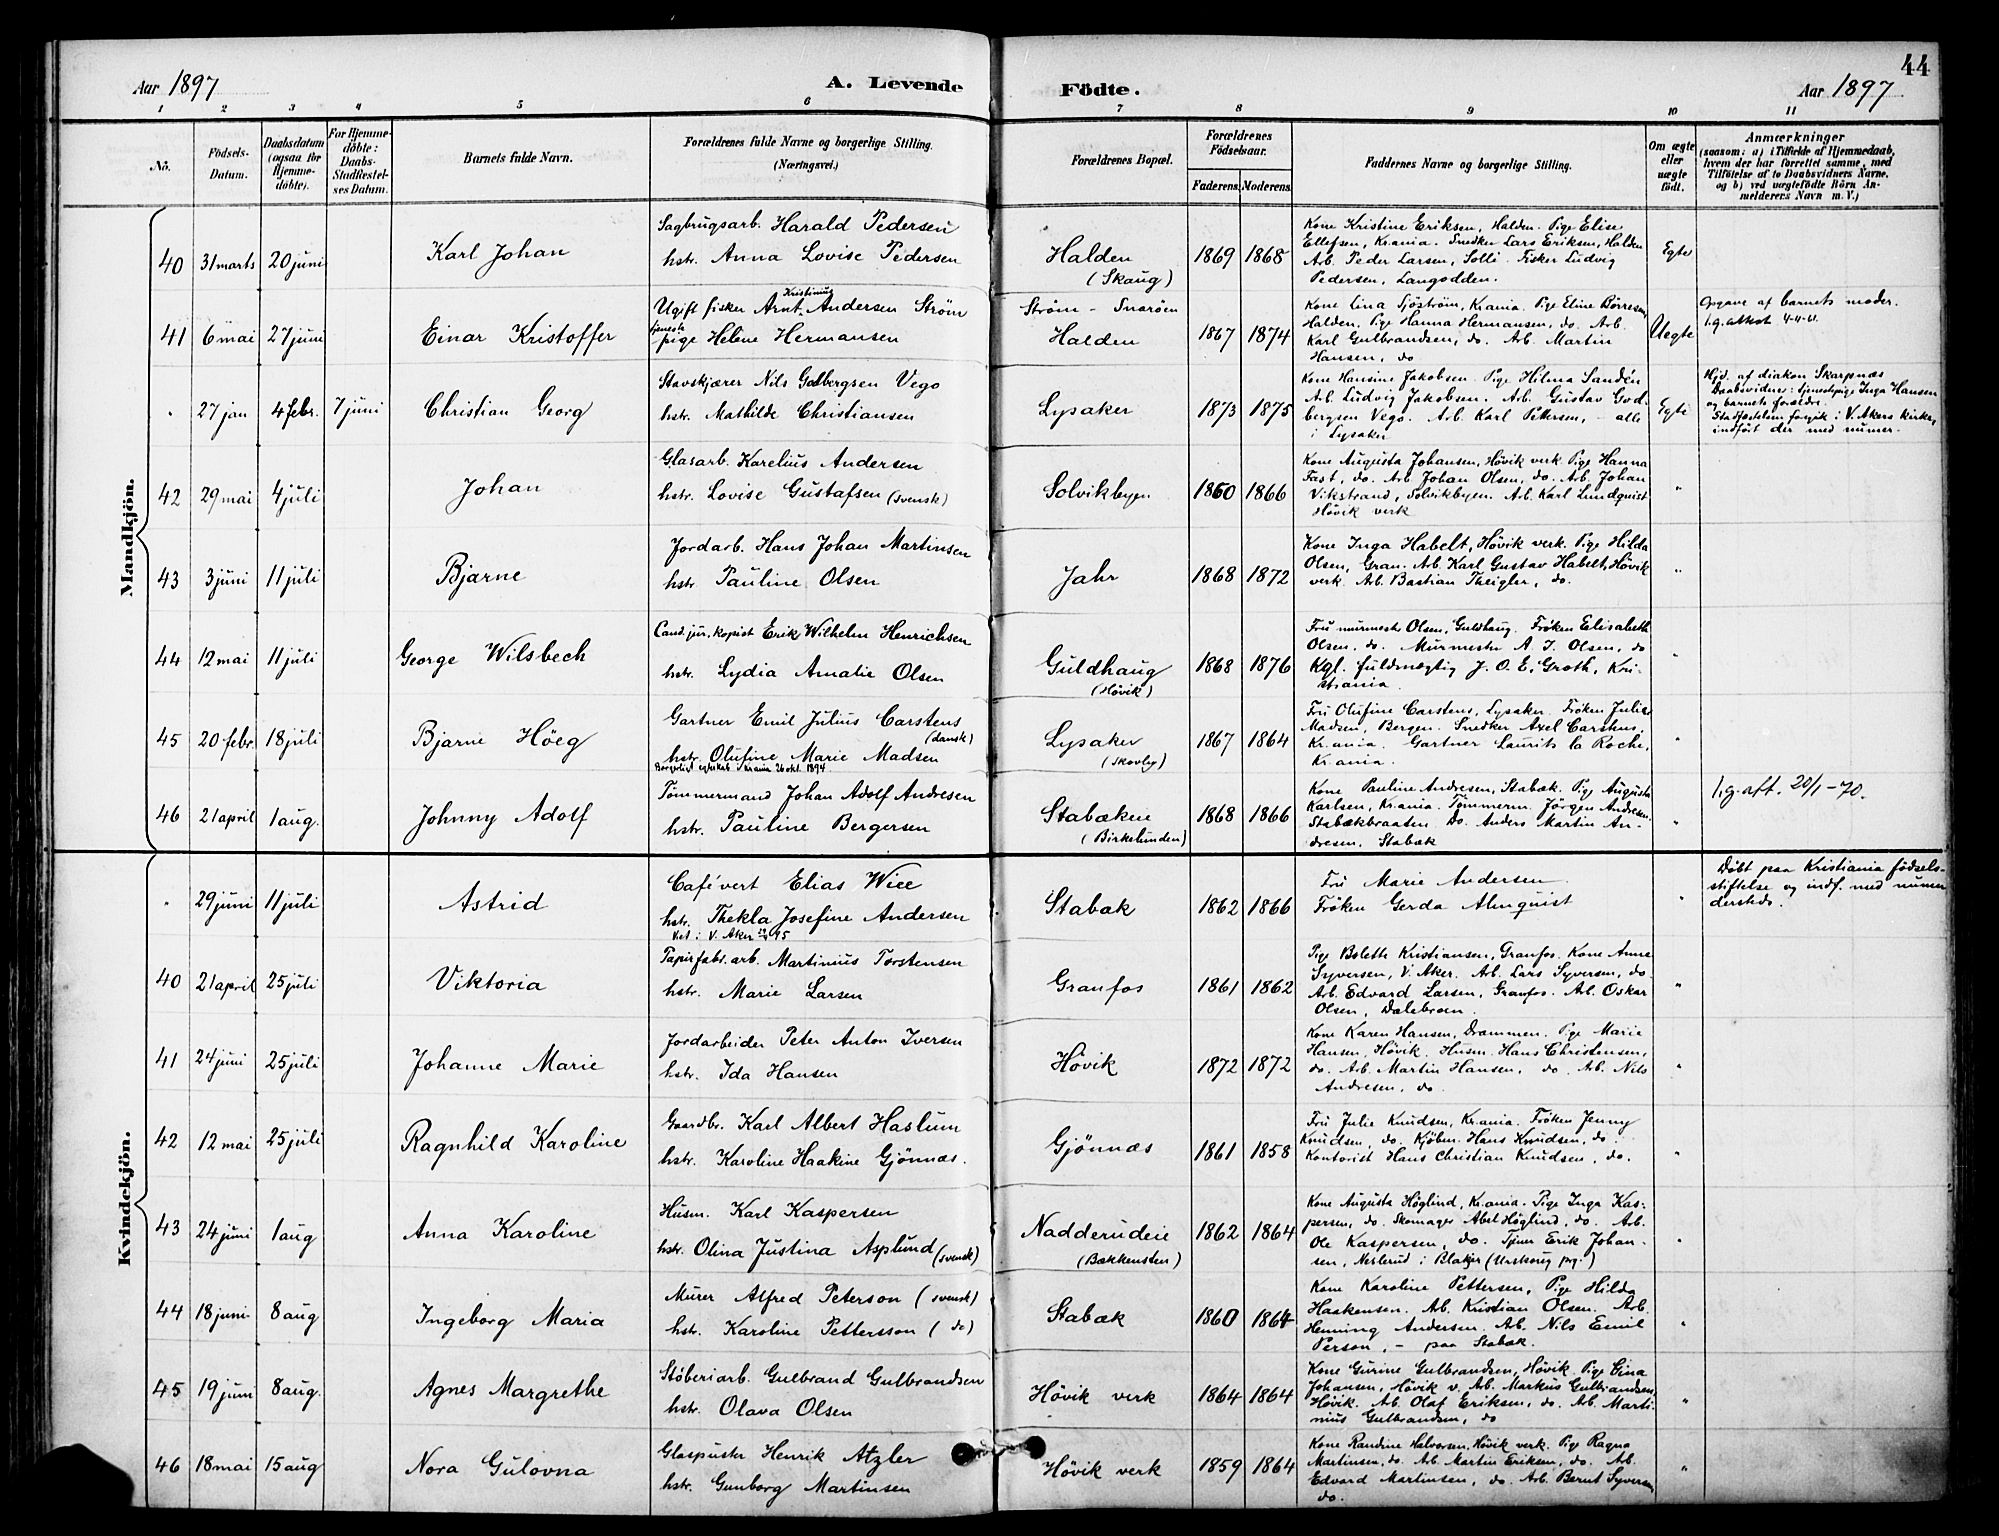 44
Aar 1897 A. Levende Födte. Aar 1897
1 2 3 4 5 6 7 8 9 10 11
No.
Födsels-
Datum.
Daabsdatum
(ogsaa for
Hjemme-
döbte).
For Hjemme-
döbte:
Daabs-
Stadfæstel-
ses Datum.
Barnets fulde Navn.
Forældrenes fulde Navne og borgerlige Stilling.
(Næringsvei.)
Forældrenes Bopæl.
Forældrenes
Födselsaar.
Faderens. Moderens.
Faddernes Navne og borgerlige Stilling.
Om ægte
eller
uægte
födt.
Anmærkninger
(saasom: a) i Tilfælde af Hjemmedaab,
hvem der har forrettet samme, med
Tilföielse af to Daabsvidners Navne,
og b) ved uægtefödte Börn An-
melderens Navn m. V.)
Mandkjön.
40 31 marts 20 juni
Karl Johan
Sagbrugsarb. Harald Pedersen
hstr. Anna Lovise Pedersen
Halden
(Skaug)
1869 1868
Kone Kristine Eriksen, Halden. Pige Elise
Ellefsen, Kr.ania. Snedker Lars Eriksen, Halden
Arb. Peder Larsen, Solli. Fisker Ludvig
Pedersen, Langodden.
Egte
41 6 mai 27 juni
Einar Kristoffer
Kristinus
Ugift fisker Arnt Andersen Strøm
tjeneste
pige Helene Hermansen
Strøm - Snarøen
Halden
1867 1874
Kone Lina Sjöström, Kr.ania. Pige Eline Børresen
Halden, Pige Hanna Hermansen, do. Arb.
Karl Gulbrandsen, do. Arb. Martin
Hansen, do
Uegte
Opgave af barnets moder.
l.g. attest 4-4-61.
" 27 jan 4 febr. 7 juni
Christian Georg
Stavskjærer Nils Godbergsen Vego
hstr. Mathilde Christiansen
Lysaker
1873 1875
Kone Hansine Jakobsen. Pige Hilma Sandén
Arb. Ludvig Jakobsen. Arb. Gustav God-
bergsen Vego. Arb. Karl Pettersen, - alle
i Lysaker
Egte
Hjd. af diakon Skarpnæs
Daabsvidner: tjenestepige Inga Hansen
og barnets forældre.
Stadfæstelsen foregik i V. Akers kirke,
indført der med numer.
42 29 mai 4 juli
Johan
Glasarb. Karelius Andersen
hstr. Lovise Gustafsen (svensk)
Solvikbyen
1860 1866
Kone Augusta Johansen, Høvik verk. Pige Hanna
Fast, do. Arb. Johan Olsen, do. Arb. Johan
Vikstrand, Solvikbyen. Arb. Karl Lundquist
Høvik verk
"
43 3 juni 11 juli
Bjarne
Jordarb. Hans Johan Martinsen
hstr. Pauline Olsen
Jahr
1868 1872
Kone Inga Habelt, Høvik verk. Pige Hilda
Olsen, Gran. Arb. Karl Gustav Habelt, Høvik
verk. Arb. Bastian Theigler, do.
"
44 12 mai 11 juli
George Wilsbech
Cand. jur., kopist Erik Wilhelm Henrichsen
hstr. Lydia Amalie Olsen
Guldhaug
(Høvik)
1868 1876
Fru murmester Olsen, Guldhaug. Frøken Elisabeth
Olsen, do. Murmester A. J. Olsen, do
Kgl. fuldmægtig J. O. E. Groth, Kri-
stiania.
"
45 20 febr. 18 juli
Bjarne Höeg
Gartner Emil Julius Carstens
(dansk)
hstr. Olufine Marie Madsen
Borgerligt egteskab i Kr.ania 26 okt. 1894
Lysaker
(Skovly)
1867 1864
Fru Olufine Carstens, Lysaker. Frøken Julie
Madsen, Bergen. Snedker Axel Carstens,
Kr.ania. Gartner Laurits la Roche,
Kr.ania.
"
46 21 april 1 aug.
Johnny Adolf
Tømmermand Johan Adolf Andresen
hstr. Pauline Bergersen
Stabækken
(Birkelunden)
1868 1866
Kone Pauline Andresen, Stabæk. Pige Augusta
Karlsen, Kr.ania. Tømmerm. Jörgen Andresen,
Stabækbraaten Do. Anders Martin An-
dresen, Stabæk
"
l.g. att. 20/1-70.
Kvindekjön.
" 29 juni 11 juli
Astrid
Cafévert Elias Wiee
hstr. Thekla Josefine Andersen
Stabæk
1862 1866
Fru Marie Andersen
Frøken Gerda Almquist
"
Døbt paa Kristiania fødsels-
stiftelse og indf. med numer
dersteds.
40 21 april 25 juli
Viktoria
Papirfabr. arb. Martinius Torstensen
hstr. Marie Larsen
Granfos
1861 1862
Pige Bolette Kristiansen, Granfos. Kone Anne
Syversen, V. Aker. Arb. Lars Syversen, do.
Arb. Edvard Larsen, Granfos. Arb. Oskar
Olsen, Dælebroen.
"
41 24 juni 25 juli
Johanne Marie
Jordarbeider Peter Anton Iversen
hstr. Ida Hansen
Høvik
1872 1872
Kone Karen Hansen, Drammen. Pige Marie
Hansen, Høvik. Husm. Hans Christensen,
do. Arb. Martin Hansen, do. Arb. Nils
Andresen, do.
"
42 12 mai 25 juli
Ragnhild Karoline
Gaardbr. Karl Albert Haslum
hstr. Karoline Haakine Gjønnæs.
Gjønnæs
1861 1858
Fru Julie Knudsen, Kr.ania. Frøken Jenny
Knudsen, do. Kjøbm. Hans Knudsen, do.
Kontorist Hans Christian Knudsen, do.
"
43 24 juni 1 aug
Anna Karoline
Husm. Karl Kaspersen
hstr. Olina Justina Asplund (svensk)
Nadderudeie
(Bækkensten)
1862 1864
Kone Augusta Höglind, Kr.ania. Pige Inga Kas-
persen, do. Skomager Abel Höglind, do. Arb.
Ole Kaspersen, do. Tjener Erik Johan-
sen, Neslerud i Blaker (Urskoug prg.)
"
44 18 juni 8 aug
Ingeborg Maria
Murer Alfred Peterson (svensk)
hstr. Karoline Pettersson (do)
Stabæk
1860 1864
Kone Karoline Pettersen, Pige Hilda
Haakensen. Arb. Kristian Olsen. Arb.
Henning Andersen. Arb. Nils Emil
Person, - paa Stabæk.
"
45 19 juni 8 aug.
Agnes Margrethe
Støberiarb. Gulbrand Gulbrandsen
hstr. Olava Olsen
Høvik verk
1864 1864
Kone Gurine Gulbrandsen, Høvik. Pige Gina
Johansen, Høvik v. Arb. Markus Gulbrandsen
Høvik. Arb. Olaf Eriksen, do. Arb. Marti-
nius Gulbrandsen, do
"
46 18 mai 15 aug
Nora Gulovna
Glaspuster Henrik Atzler
hstr. Gunborg Martinsen
Høvik verk
1859 1864
Kone Randine Halvorsen, Høvik verk. Pige Ragna
Martinsen, do. Arb. Martin Eriksen, do. Arb.
Edvard Martinsen, do. Arb. Bernt Syversen
do.
"